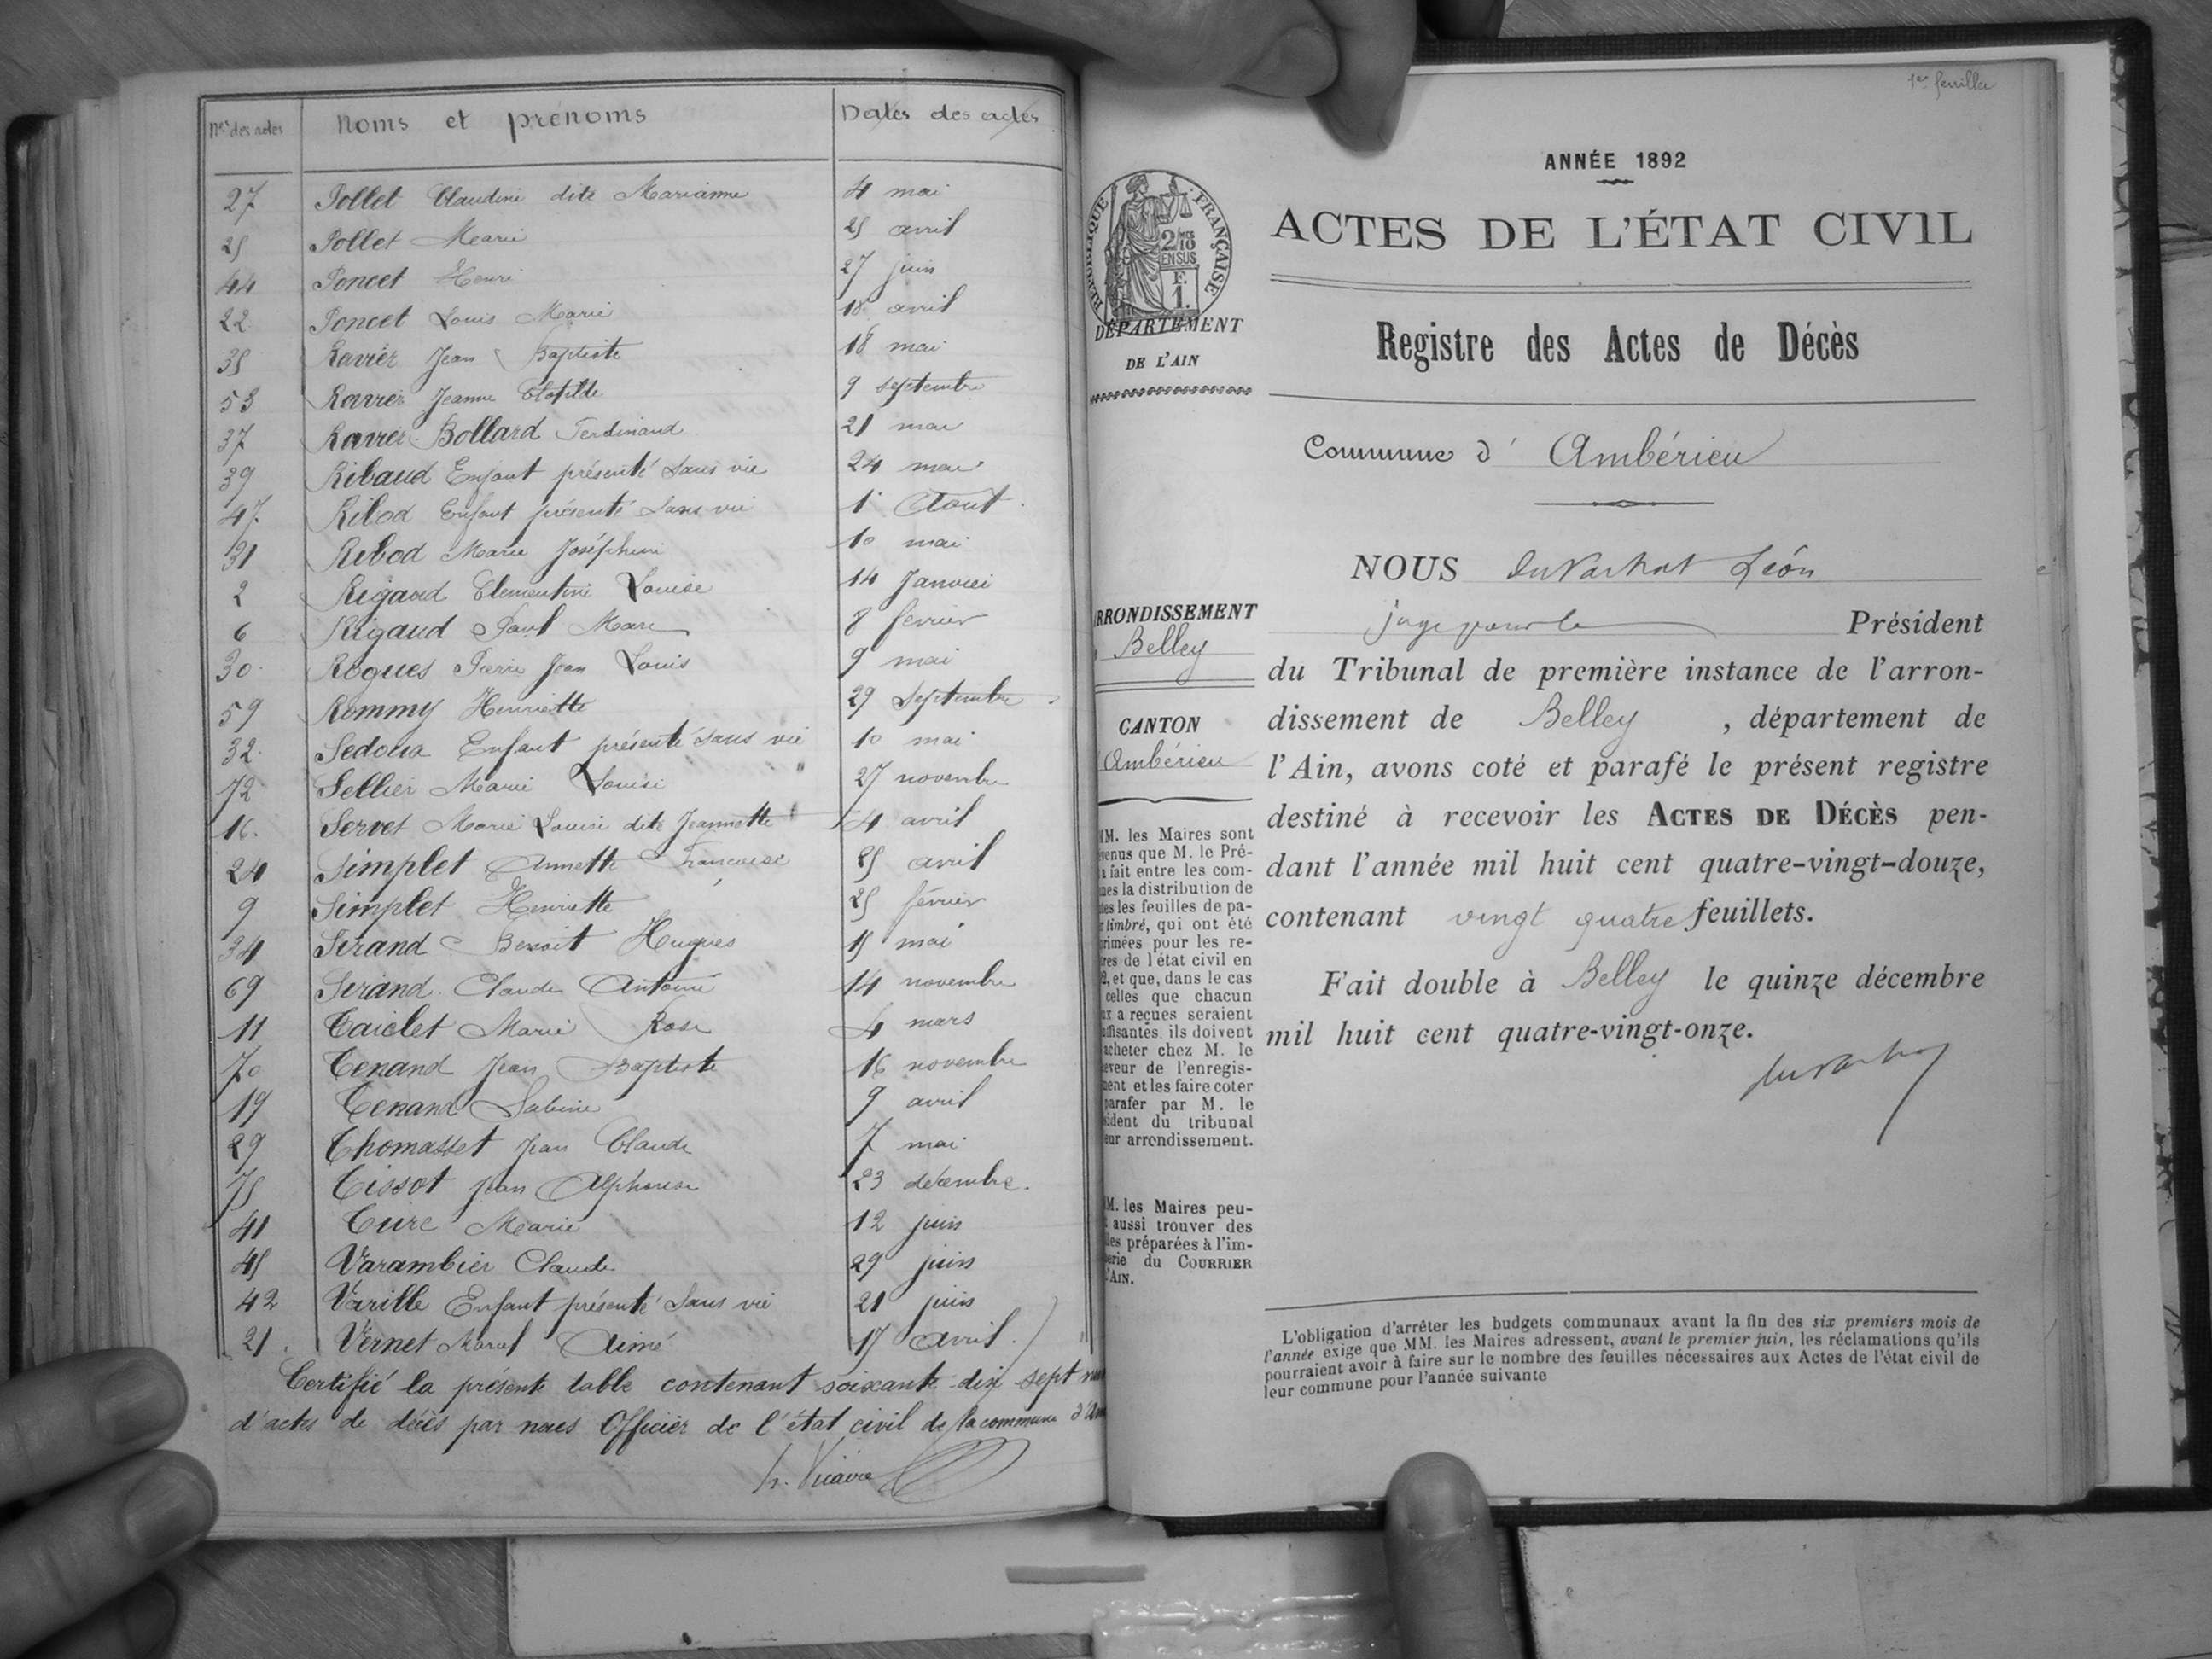 Nos des actes Noms et prénoms Dates des actes
27 Pollet Claudine dite Marianne 4 mai
25 Pollet Marie 25 avril
44 Poncet Henri 27 juin
22 Poncet Louis Marie 18 avril
35 Ravier Jean Baptiste 18 mai
53 Ravier Jeanne Clotilde 9 septembre
37 Ravier-Bollard Ferdinand 21 mai
39 Ribaud Enfant présenté sans vie 24 mai
47 Ribod Enfant présenté sans vie 1 Août
31 Ribod Marie Joséphine 10 mai
2 Rigaud Clementine Louise 14 Janvier
6 Rigaud Paul Marc 8 fevrier
30 Rogues Pierre Jean Louis 9 mai
59 Rommy Henriette 29 Septembre
32 Sedoux Enfant présenté sans vie 10 mai
72 Sellier Marie Louise 27 novembre
16. Servet Marie Louise dite Jeannette 4 avril
24 Simplet Annette Francoise 25 avril
9 Simplet Henriette 25 février
34 Sirand Benoit Hugues 15 mai
69 Sirand Claude Antoine 14 novembre
11 Taiclet Marie Rose 4 mars
70 Tenand Jean Baptiste 16 novembre
19 Tenand Sabine 9 avril
29 Thomasset Jean Claude 7 mai
75 Tissot Jean Alphonse 23 décembre.
41 Ture Marie 12 juin
45 Varambier Claude 29 juin
42 Varille Enfant présenté sans vie 21 juin
21. Vernet Marcel Aimé 17 avril.
Certifié la présente table contenant soixante dix sept
d'actes de décès par nous Officier de l'état civil de la commune
h. Vicaire
1er feuillet
ANNÉE 1892
ACTES DE L'ÉTAT CIVIL
RÉPUBLIQUE FRANÇAISE
2/10
EN SUS
F.
1.
DÉPARTEMENT
DE L'AIN
Registre des Actes de Décès
Commune d' Ambérieu
NOUS Léon
juge pour le Président
du Tribunal de première instance de l'arron-
dissement de Belley, département de
l'Ain, avons coté et parafé le présent registre
destiné à recevoir les ACTES DE DÉCÈS pen-
dant l'année mil huit cent quatre-vingt-douze,
contenant vingt quatre feuillets.
Fait double à Belley le quinze décembre
mil huit cent quatre-vingt-onze.
RRONDISSEMENT
Belley
CANTON
Ambérieu
MM. les Maires sont
venus que M. le Pré-
a fait entre les com-
nes la distribution de
es les feuilles de pa-
r timbré, qui ont été
rimées pour les re-
res de l'état civil en
2, et que, dans le cas
celles que chacun
ux a reçues seraient
uffisantes, ils doivent
acheter chez M. le
eveur de l'enregis-
ment et les faire coter
parafer par M. le
sident du tribunal
eur arrondissement.
M. les Maires peu-
t aussi trouver des
les préparées à l'im-
erie du COURRIER
l'AIN.
L'obligation d'arrêter les budgets communaux avant la fin des six premiers mois de
l'année exige que MM. les Maires adressent, avant le premier juin, les réclamations qu'ils
pourraient avoir à faire sur le nombre des feuilles nécessaires aux Actes de l'état civil de
leur commune pour l'année suivante